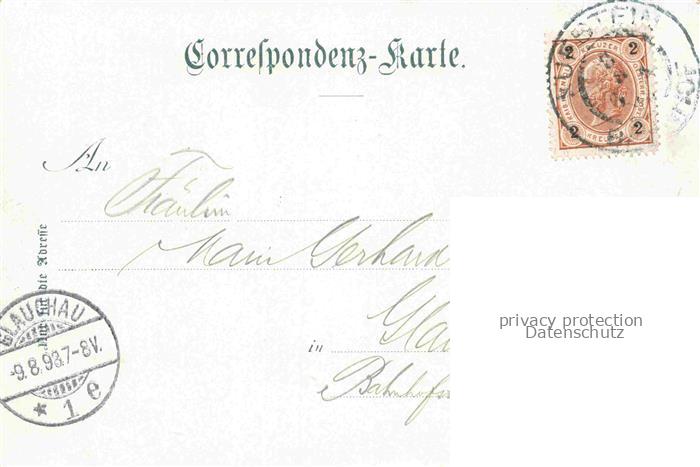 Correspondenz-Karte.
2 KREUZER 2
2 KREUZER 2
An
Fräulein
Gerhard
Nur für die Adresse
GLAUCHAU
-9.8.98.7-8V.
* 1 e
in Glau
Bahnhofs
privacy protection
Datenschutz